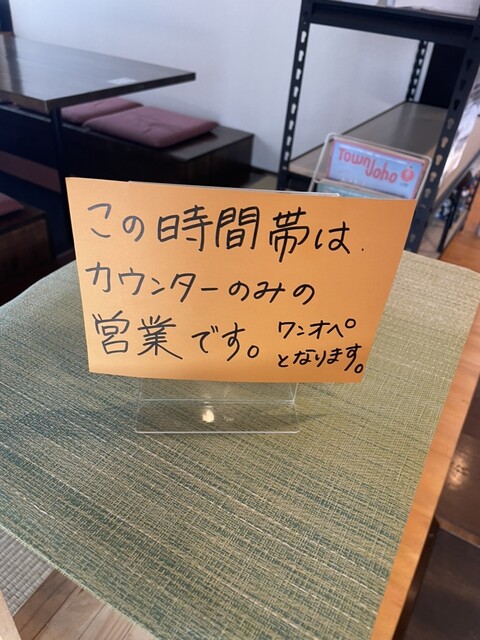 Town Joho
この時間帯は
カウンターのみの
営業です。ワンオペ
となります。